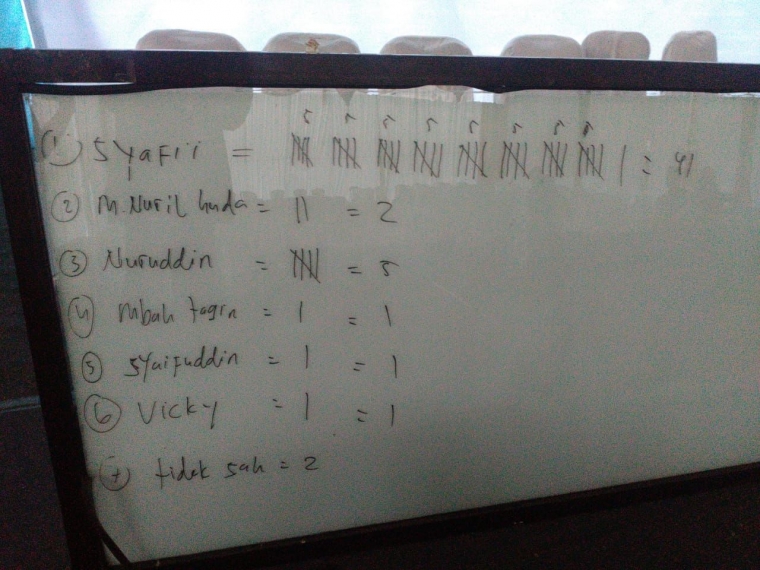 5 5 5 5 5 5 5 5
① Syafi'i = 𝍸 𝍸 𝍸 𝍸 𝍸 𝍸 𝍸 𝍸 | = 41
② M. Nuril huda = || = 2
③ Nuruddin = 𝍸 = 5
④ Mbah = | = 1
⑤ Syaifuddin = | = 1
⑥ Vicky = | = 1
⑦ tidak sah = 2